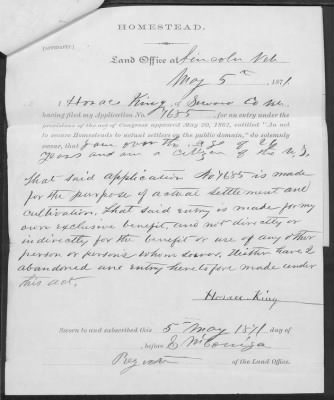 HOMESTEAD.
(AFFIDAVIT.)
Land Office at Lincoln Neb
May 5th, 1871.
I Horace King, of Seward Co Ne.
having filed my Application No. 9685, for an entry under the
provisions of the act of Congress approved May 20, 1862, entitled "An act
to secure Homesteads to actual settlers on the public domain," do solemnly
swear, that I am over the age of 21
years and am a citizen of the U.S.
that said application No 9685 is made
for the purpose of actual settlement and
cultivation. That said entry is made for my
own exclusive benefit, and not directly or
indirectly for the benefit or use of any other
person or persons whomsoever. Neither have I
abandoned one entry heretofore made under
this act.
Horace King
Sworn to and subscribed this 5" May 1871 day of
, before
Register of the Land Office.